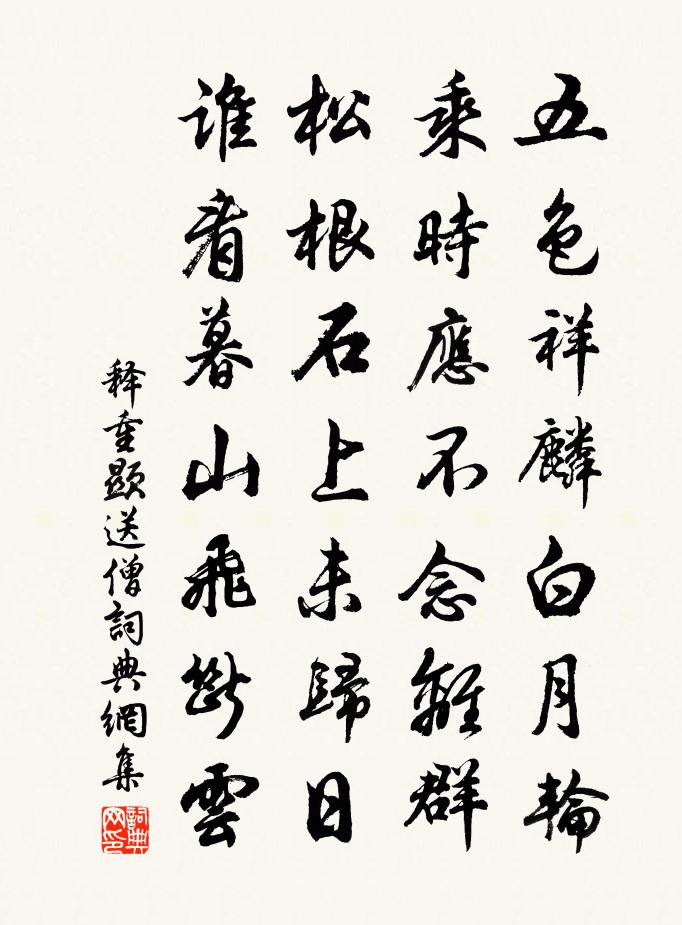 五色祥麟白月輪
乘時應不念離群
松根石上未歸日
誰看暮山飛斷雲
释重顯送僧詞典網集
詞典网印